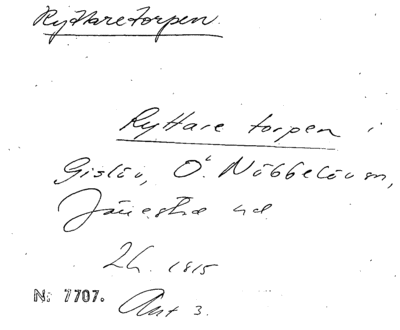 Ryttaretorpen
Ryttare torpen i
Gislöv, Ö. Nöbbelöv m,
Järrestad hd
Lh. 1815
Nr 7707. Ant 3.